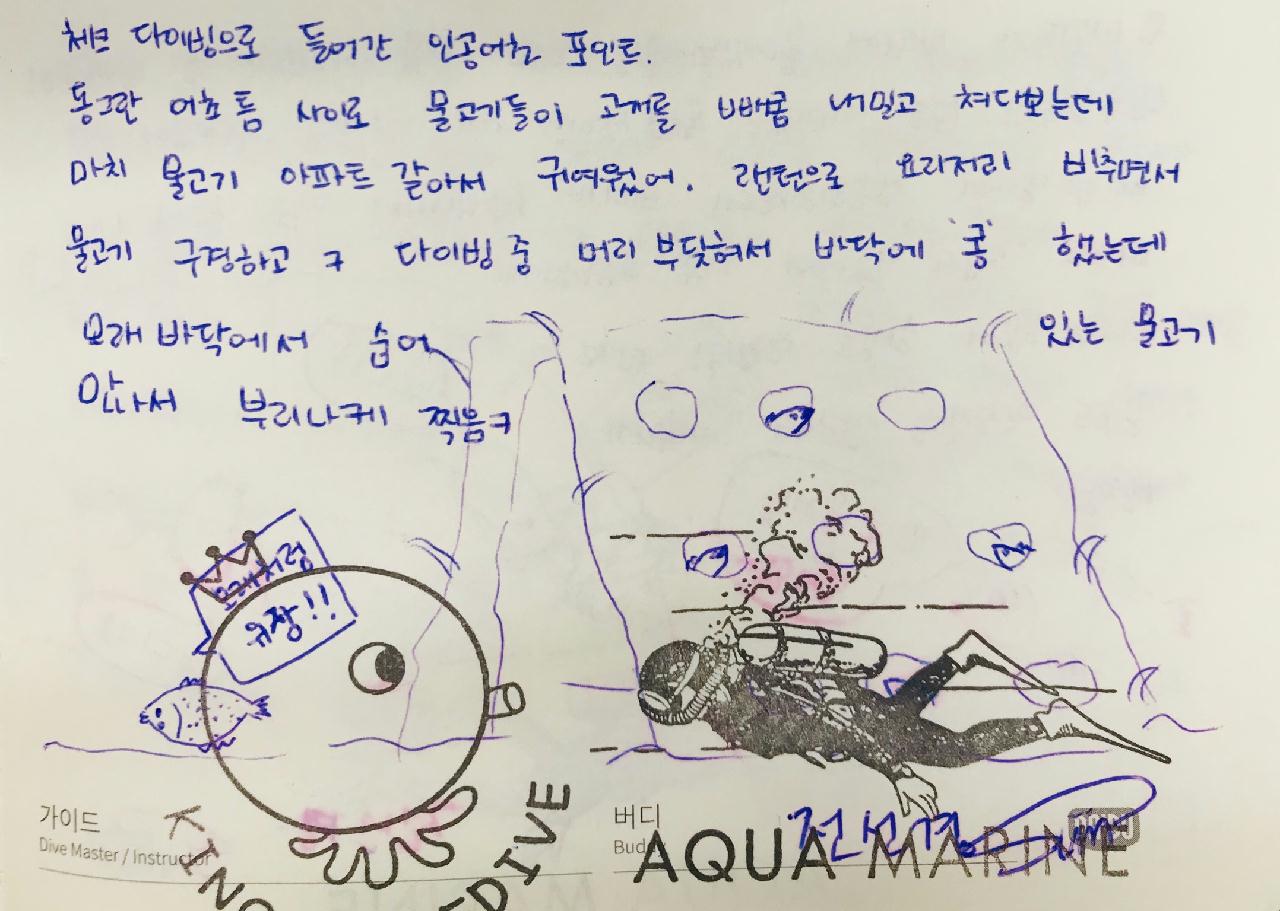 체크 다이빙으로 들어간 인공어초 포인트.
동그란 어초 틈 사이로 물고기들이 고개를 빼꼼 내밀고 쳐다보는데
마치 물고기 아파트 같아서 귀여웠어. 랜턴으로 요리저리 비추면서
물고기 구경하고 ㅋ 다이빙 중 머리 부딪혀서 바닥에 '콩' 했는데
모래 바닥에서 숨어 있는 물고기
찾아서 부리나케 찍음ㅋ
모래처럼
위장!!
가이드
Dive Master / Instructor
KING
DIVE
버디
Bud
전선경
AQUA MARINE